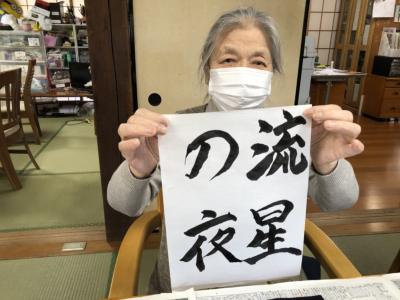 流星
の夜